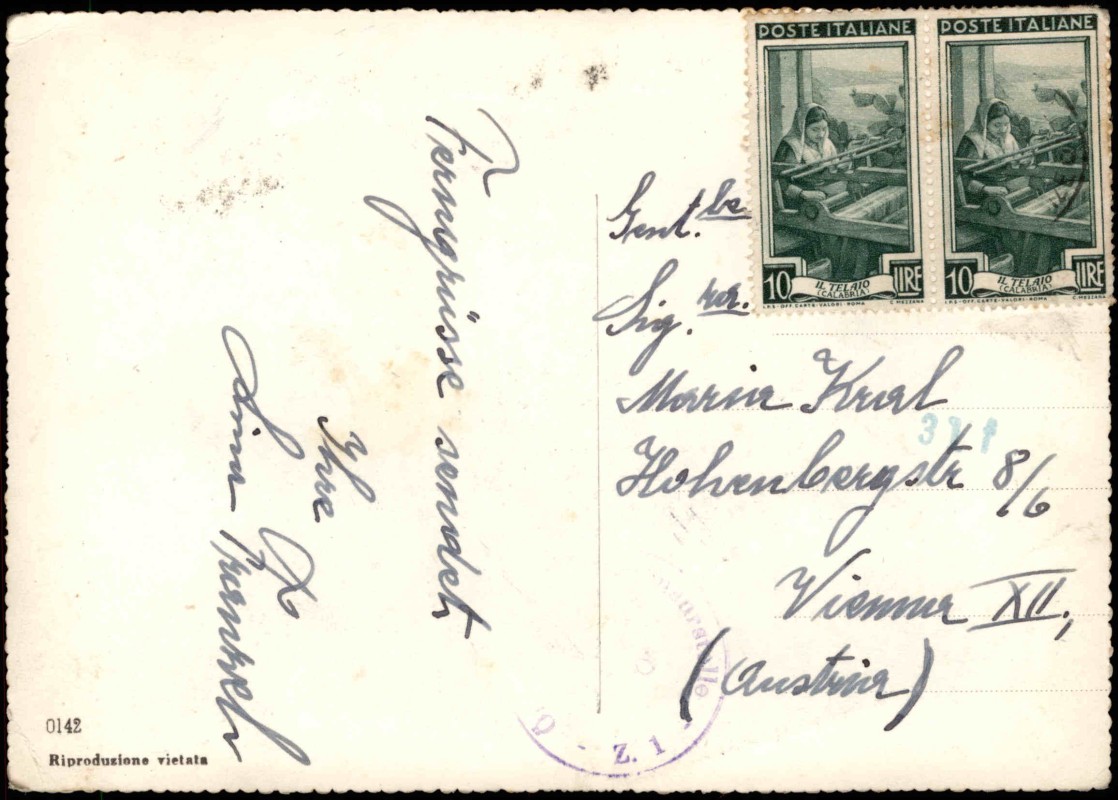 Ferngrüsse sendet
Ihre
Frankel
0142
Riproduzione vietata
POSTE ITALIANE
10 LIRE
IL TELAIO
(CALABRIA)
I.P.S. - OFF. CARTE - VALORI - ROMA
C. MEZZANA
POSTE ITALIANE
10 LIRE
IL TELAIO
(CALABRIA)
I.P.S. - OFF. CARTE - VALORI - ROMA
C. MEZZANA
Gent.
Sig.ra.
Maria Kral
Hohenbergstr 8/6
Vienna XII,
(Austria)
Z. 1